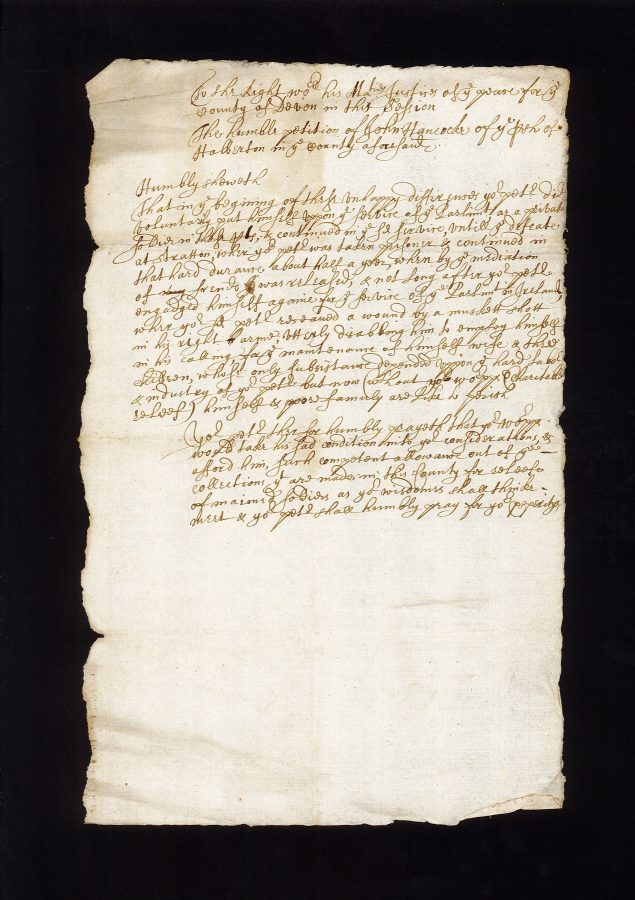 To the Right wo:rd his Ma:ties Justices of ye peace for ye
County of Devon in this Session
The humble petition of John Hancocke of ye psh of
Halberton in ye County aforesaid.
Humbly sheweth
That in ye begining of these unhappy differences yor petr did
voluntary put himself upon ye service of ye Parlimt as a private
soldier in & continued in ye sd service untill ye defeate
at Stratton, wher yor petr was taken prisoner & continued in
that hard durance about half a yeer, when by ye mediation
of friends was released, & not long after yor petr
engadged himself againe for ye service of ye Parlimt in Ireland,
wher yor sd petr receaved a wound by a muskett shott
in his right arme, utterly disabling him to employ himself
in his calling for ye mantenance of himself wife & three
children, whose only subsistance depended uppon ye hard labor
& industry of yor petr but now (without yor worpps charitable
releef) himself & poore family are like to perish
Yor petr ther for humbly prayeth that yor worpps
would take his sad condition into yor considerations, &
afford him such competent allowance out of ye
collections yt are made in this County for releefe
of maiond soldiers as yor wisdomes shall thinke
meet & yor petr shall humbly pray for yor psperitys